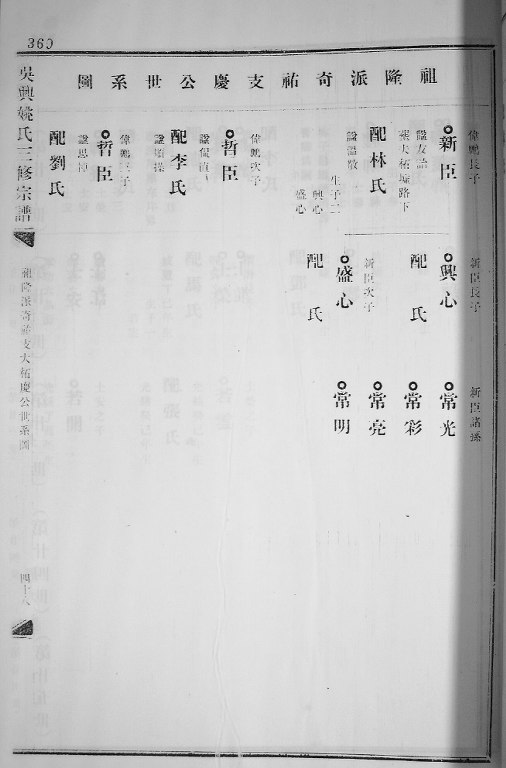 360
祖隆派奇祐支慶公世系圖
偉鵬長子
新臣
諡友諒
葬大柘墟路下
配林氏
諡溫敬
生子二
興心
盛心
偉鵬次子
哲臣
諡侃直
配李氏
偉鵬三子
哲臣
配劉氏
新臣長子
興心
配 氏
新臣次子
盛心
配 氏
新臣諸孫
常光
常彩
常亮
常明
吳興姚氏三修宗譜
祖隆派奇祐支大柘慶公世系圖
四十八